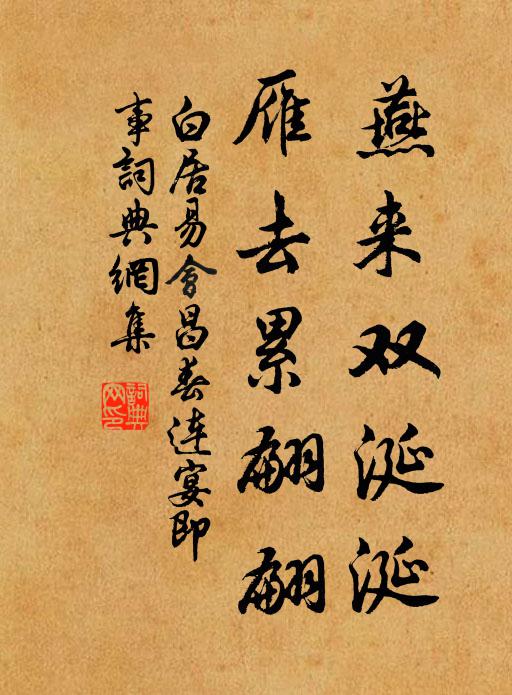 燕来双涎涎
雁去累翩翩
白居易會昌春连宴即
事詞典網集
詞典网印